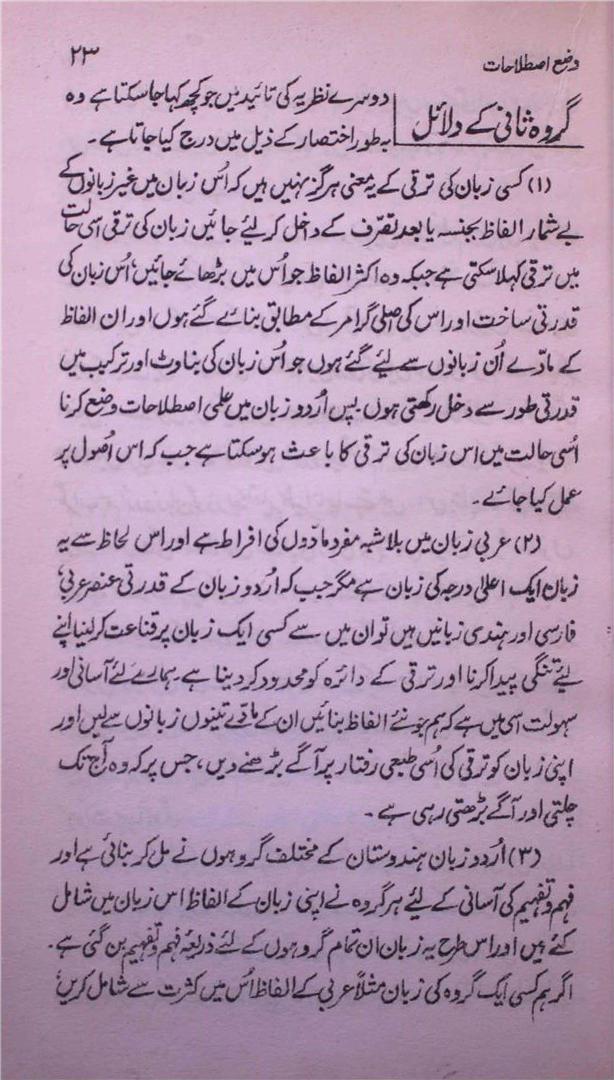 وضع اصطلاحات ۲۳
گروہ ثانی کے دلائل
دوسرے نظریہ کی تائید میں جو کچھ کہا جاسکتا ہے وہ
بہ طور اختصار کے ذیل میں درج کیا جاتا ہے۔
(۱) کسی زبان کی ترقی کے یہ معنی ہرگز نہیں ہیں کہ اُس زبان میں غیر زبانوں کے
بے شمار الفاظ بجنسہ یا بعد تصرف کے داخل کر لیے جائیں زبان کی ترقی اسی حالت
میں ترقی کہلا سکتی ہے جبکہ وہ اکثر الفاظ جو اُس میں بڑھائے جائیں، اُس زبان کی
قدرتی ساخت اور اس کی اصلی گرامر کے مطابق بنائے گئے ہوں اور ان الفاظ
کے مادّے اُن زبانوں سے لیے گئے ہوں جو اُس زبان کی بناوٹ اور ترکیب میں
قدرتی طور سے دخل رکھتی ہوں۔ پس اُردو زبان میں علمی اصطلاحات وضع کرنا
اُسی حالت میں اس زبان کی ترقی کا باعث ہوسکتا ہے جب کہ اس اُصول پر
عمل کیا جائے۔
(۲) عربی زبان میں بلا شبہ مفرد مادّوں کی افراط ہے اور اس لحاظ سے یہ
زبان ایک اعلیٰ درجہ کی زبان ہے مگر جب کہ اُردو زبان کے قدرتی عنصر عربی،
فارسی اور ہندی زبانیں ہیں تو ان میں سے کسی ایک زبان پر قناعت کر لینا اپنے
لیے تنگی پیدا کرنا اور ترقی کے دائرہ کو محدود کر دینا ہے۔ ہمارے لئے آسانی اور
سہولت اسی میں ہے کہ ہم جو نئے الفاظ بنائیں ان کے مادّے تینوں زبانوں سے لیں اور
اپنی زبان کو ترقی کی اُسی طبعی رفتار پر آگے بڑھنے دیں، جس پر کہ وہ آج تک
چلتی اور آگے بڑھتی رہی ہے۔
(۳) اُردو زبان ہندوستان کے مختلف گروہوں نے مل کر بنائی ہے اور
فہم و تفہیم کی آسانی کے لئے ہر گروہ نے اپنی زبان کے الفاظ اس زبان میں شامل
کئے ہیں اور اس طرح یہ زبان ان تمام گروہوں کے لئے ذریعۂ فہم و تفہیم بن گئی ہے۔
اگر ہم کسی ایک گروہ کی زبان مثلاً عربی کے الفاظ اُس میں کثرت سے شامل کریں،